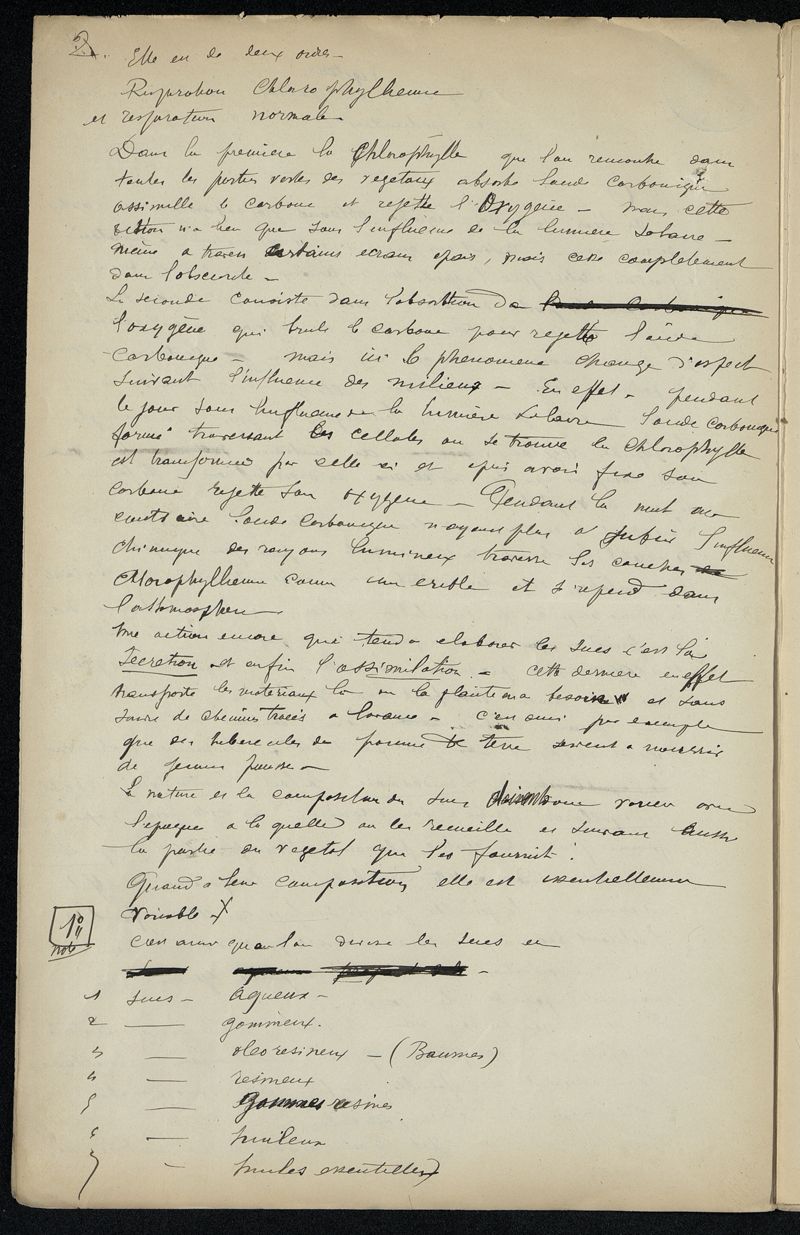 2.
Elle est de deux ordres
Respiration Chlorophyllienne
et respiration normale
Dans la premiere la Chlorophylle que l'on rencontre dans
toutes les parties vertes des vegetaux absorbe l'acide carbonique
assimille le carbone et rejette l'Oxygène – mais cette
action n'a lieu que sous l'influence de la lumiere Solaire –
même a travers certains ecrans epais, mais cesse completement
dans l'obscurite –
La seconde consiste dans l'absorbtion de
l'oxygène qui brule le carbone pour rejetter l'acide
carbonique – mais ici le phenomene change d'aspect
suivant l'influence des milieux – En effet – pendant
le jour sous l'influence de la lumière Solaire l'acide carbonique
formé traversant les cellules ou se trouve la chlorophylle
est transformé par celle ci et apres avoir fixe son
carbone rejette son oxygene – Pendant la nuit au
contraire l'acide carbonique n'ayant plus a subir l'influence
chimique des rayons lumineux traverse les couches
chlorophyllienne comme un crible et s'repend dans
l'atthmosphere
Une action encore qui tend a elaborer les sucs c'est la
Secretion et enfin l'assimilation – cette derniere en effet
transporte les materiaux la ou la plante en a besoin et sans
suivre de chemins tracés a l'avance – c'est ainsi par exemple
que des tubercules de pomme de terre servent a nourrir
de jeunes pousses –
La nature et la composition du sucs doivent donc varier avec
l'epoque a laquelle on les recueille et suivant aussi
la partie du vegetal qui les fournit.
Quand a leur composition elle est essentiellement
variable
1°
note
c'est ainsi que l'on divise les sucs en
1 sucs – aqueux –
2 — gommeux.
3 — oleoresineux – (Baumes)
4 — resineux
5 — gommes resines
6 — huileux
7 – huiles essentielles